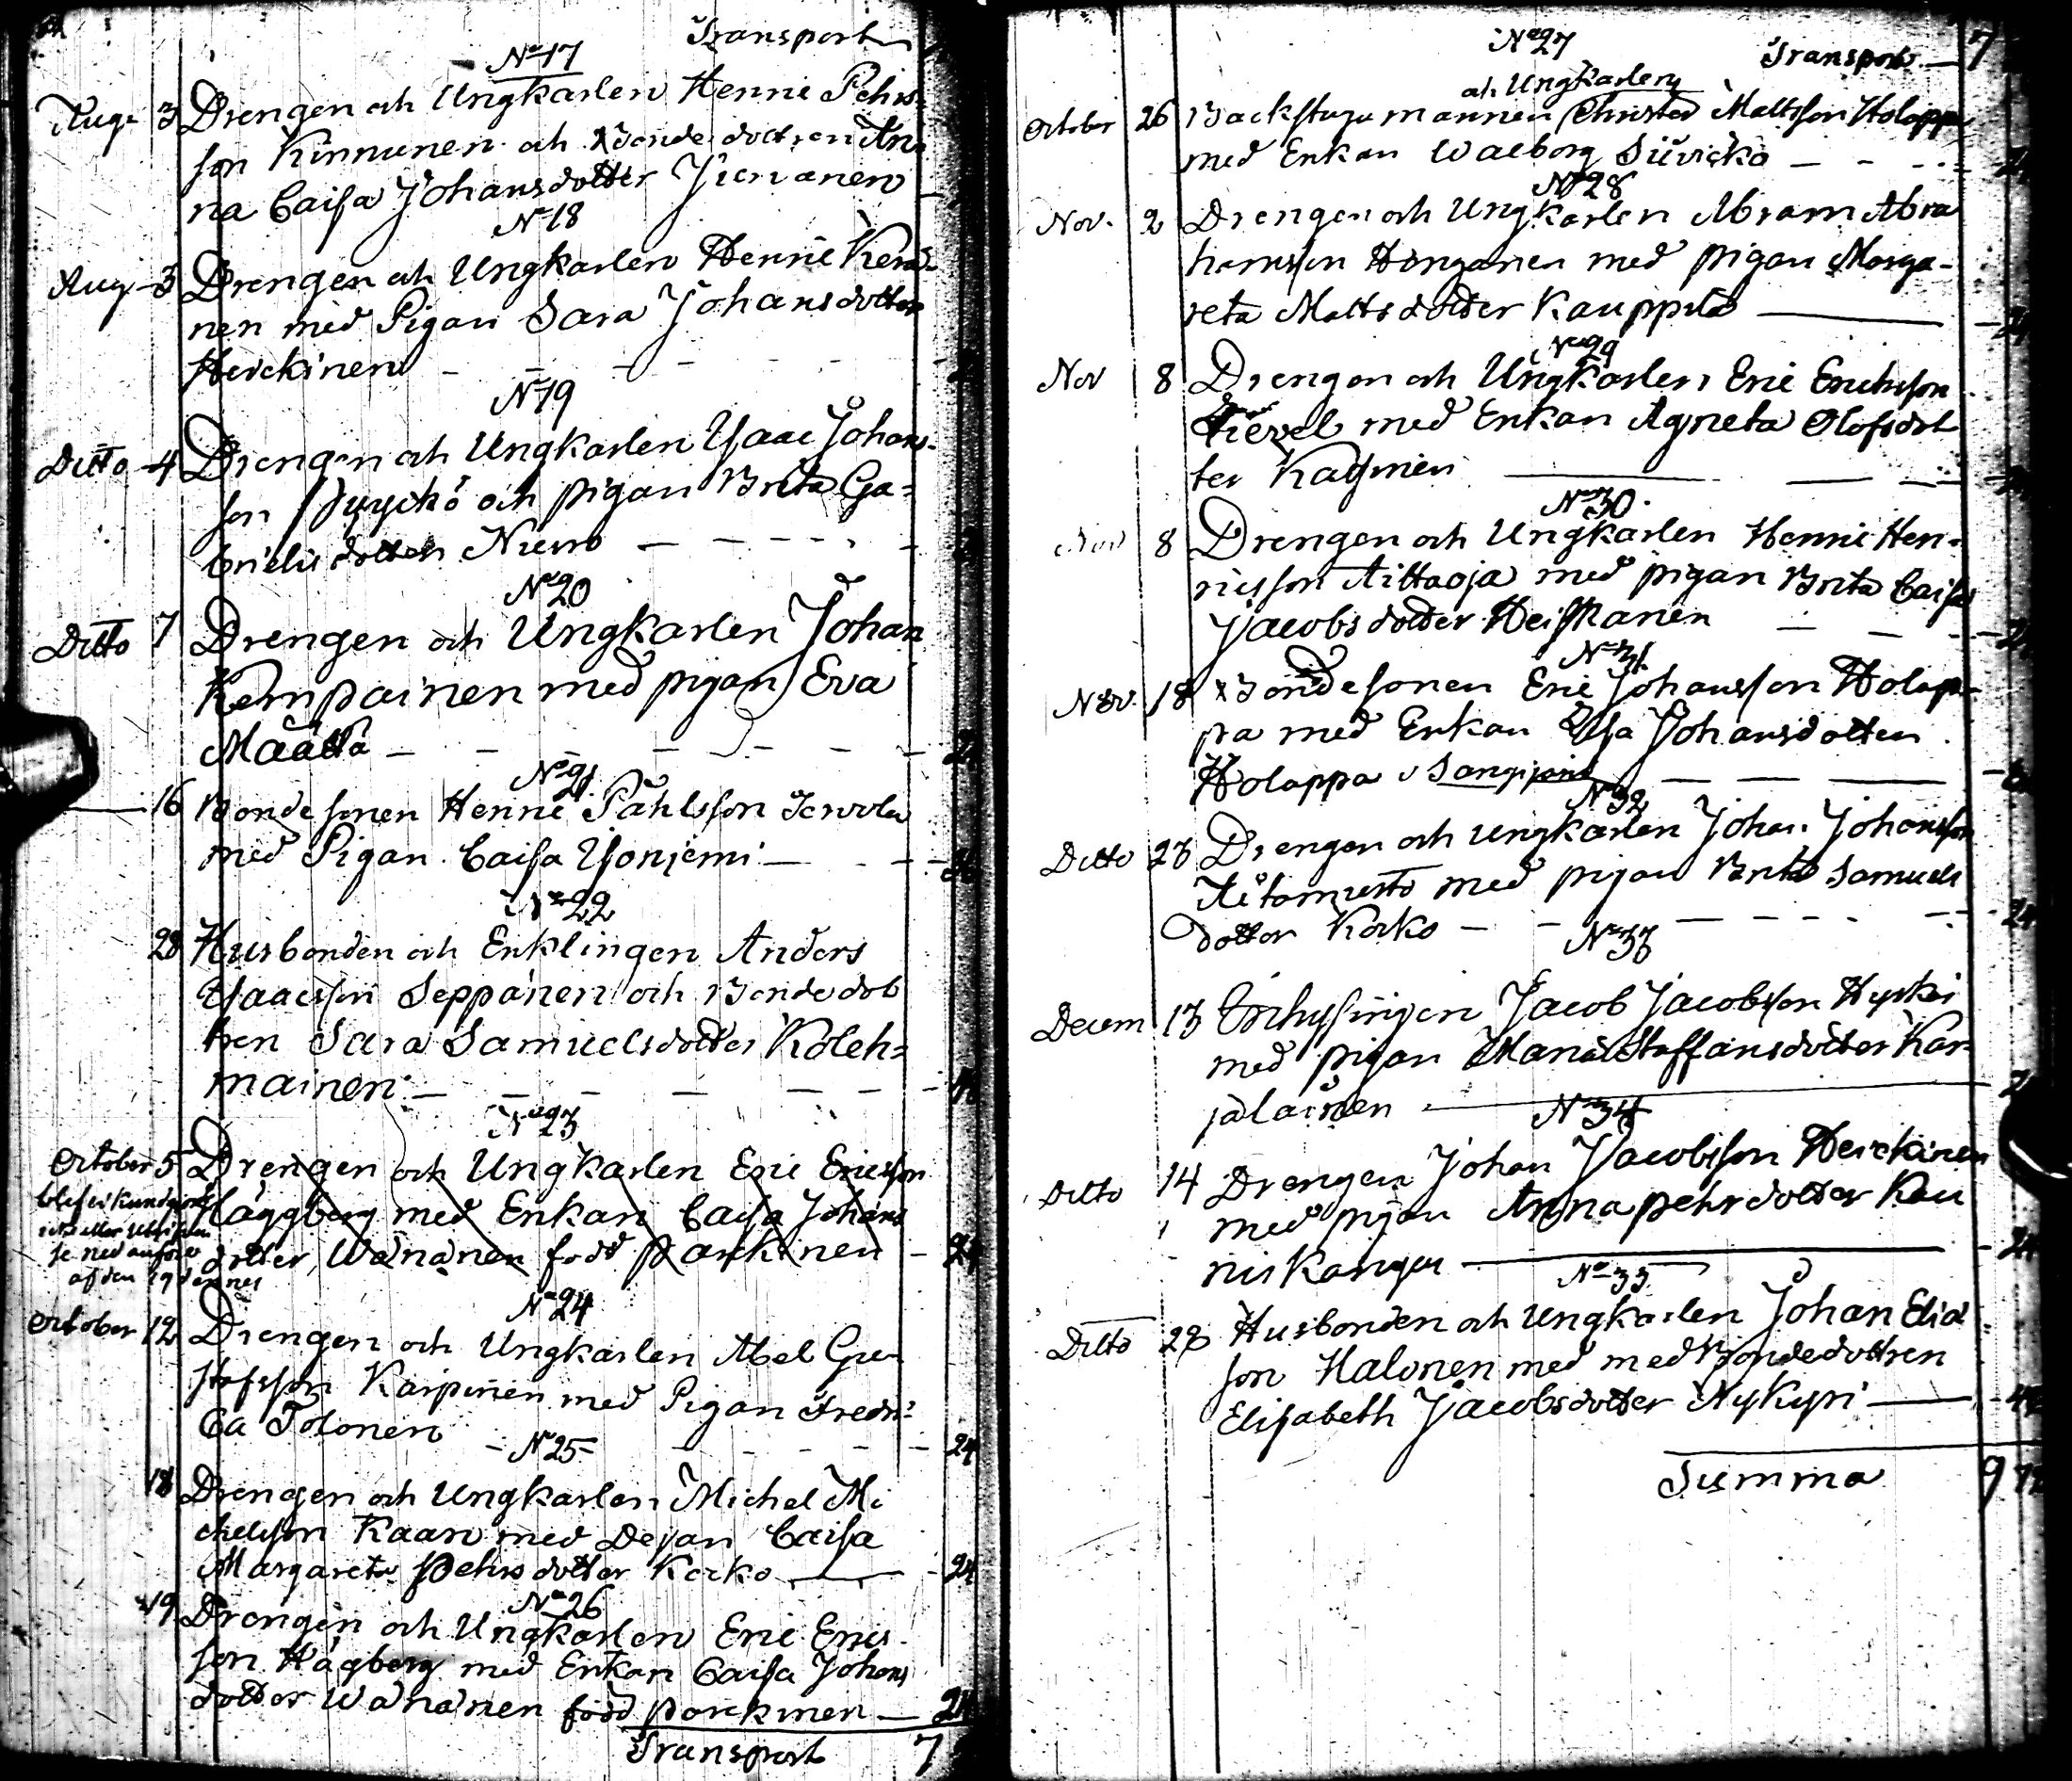 Transport
No 17
Aug. 3 Drengen och Ungkarlen Henric Pehrs-
son Kinnunen och Bonde dottren An
na Caisa Johansdotter
No 18
Aug 3 Drengen och Ungkarlen Henric Kera-
nen med Pigan Sara Johansdotter
Herckinen
No 19
Ditto 4 Drengen och Ungkarlen Isaac Johans-
son Pyyckö och pigan Brita Ga-
brielsdotter
No 20
Ditto 7 Drengen och Ungkarlen Johan
Kempainen med pigan Eva
Määttä
No 21
16 Bondesonen Henric Påhlsson
med Pigan Caisa
No 22
28 Husbonden och Enklingen Anders
Isaacsson Seppänen och Bondedot
tren Sara Samuelsdotter Koleh-
mainen
No 23
October 5 Drengen och Ungkarlen Eric Ericsson
Häggberg med Enkan Caisa Johans
dotter Wänänen född Parckinen 24
af den 19 dennes
No 24
October 12 Drengen och Ungkarlen Abel Gu
stafsson Karpinen med Pigan Fredri-
ca Tolonen 24
No 25
18 Drengen och Ungkarlen Michel Mi
chelsson Kaan med Dejan Caisa
Margareta Pehrsdotter Korko 24
No 26
19 Drengen och Ungkarlen Eric Erics
son Hägberg med Enkan Caisa Johans
dotter Wänänen född Parckinen 24
Transport 7
No 27
Transport 7
och Ungkarlen
October 26 Backstugumannen Christer Mattsson Holappa
med Enkan Walborg
No 28
Nov. 2 Drengen och Ungkarlen Abram Abra
hamsson Honganen med pigan Marga-
reta Mattsdotter Kauppila
No 29
Nov 8 Drengen och Ungkarlen Eric Ericksson
med Enkan Agneta Olofsdot
ter
No 30
Nov 8 Drengen och Ungkarlen Henric Hen-
ricsson Aittaoja med pigan Brita Caisa
Jacobsdotter Heiskanen
No 31
Nov. 18 Bondesonen Eric Johansson Holap-
pa med Enkan Johansdotter
Holappa
No 32
Ditto 23 Drengen och Ungkarlen Johan Johansson
med pigan Brita Samuels
dotter Korko 24
No 33
Decem 13 Jacob Jacobsson Hyrki
med pigan Maria Staffansdotter Kar-
jalainen
No 34
Ditto 14 Drengen Johan Jacobsson Herckinen
med pigan Anna Pehrsdotter Kau
niskangas 24
No 35
Ditto 28 Husbonden och Ungkarlen Johan Elia
son Halonen med med Bondedottren
Elisabeth Jacobsdotter Nykyri
Summa 9